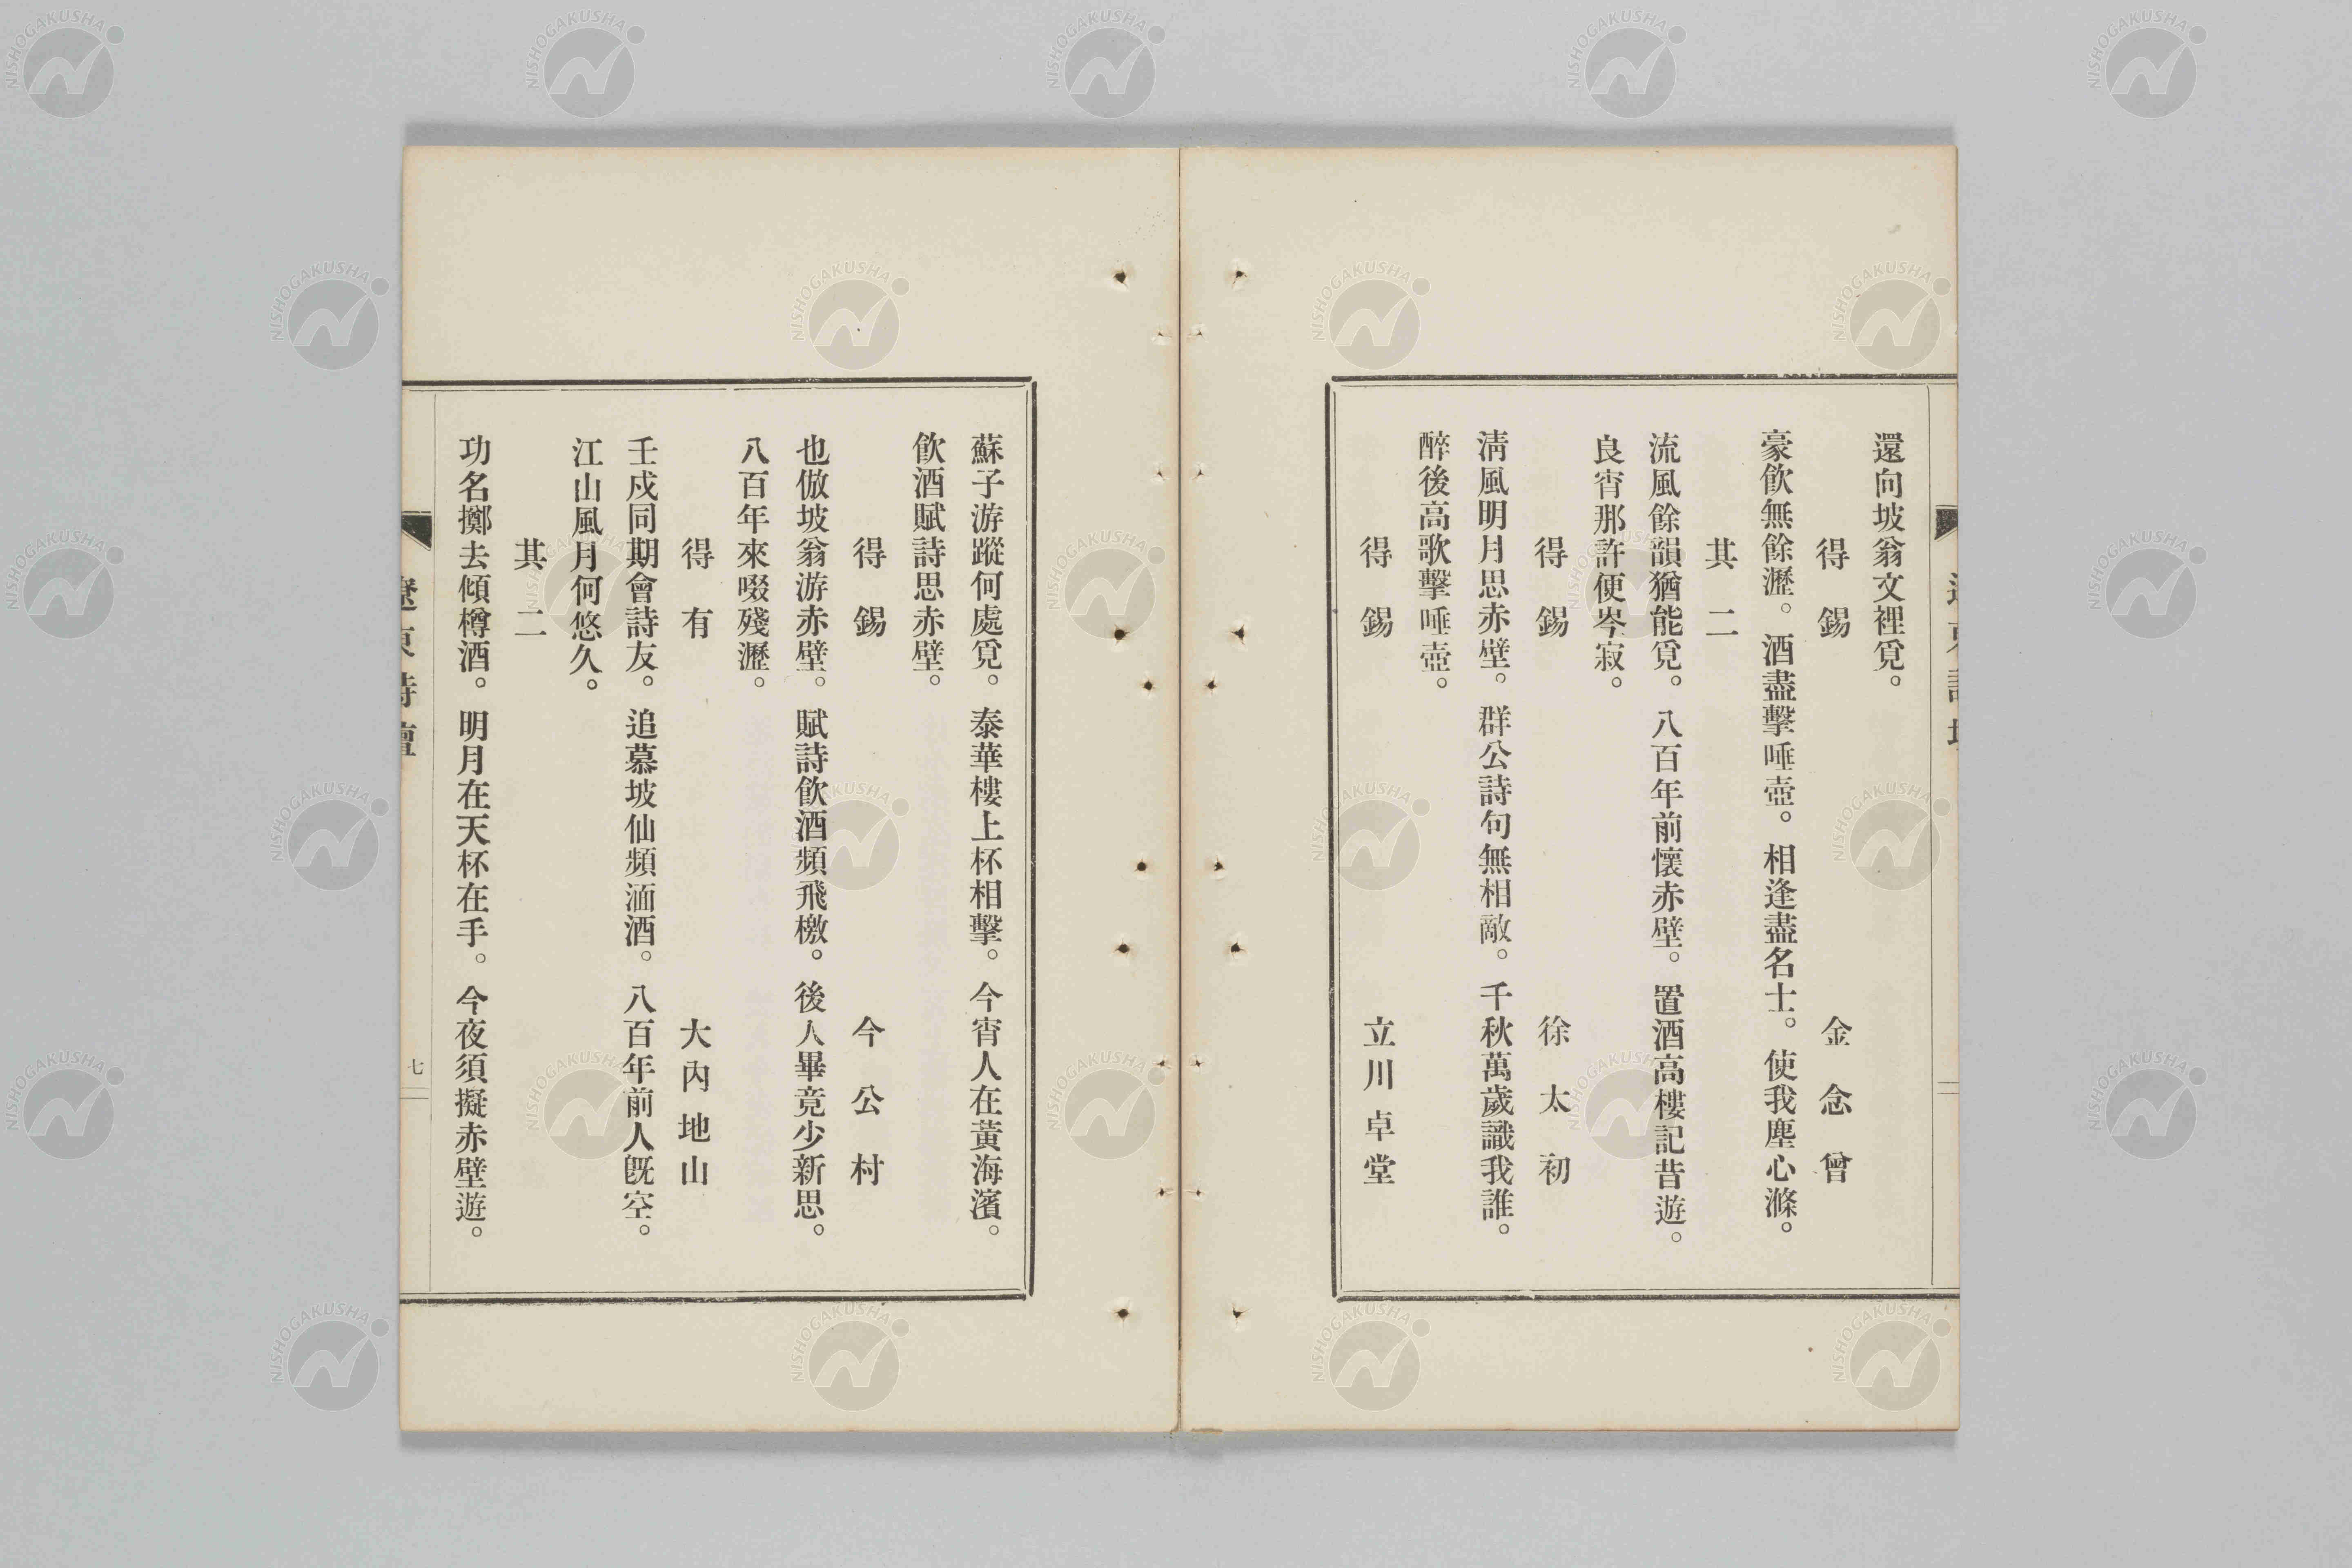 還向坡翁文裡覓。
得錫　金念曾
豪飲無餘瀝。酒盡擊唾壺。相逢盡名士。使我塵心滌。
其二
流風餘韻猶能覓。八百年前懷赤壁。置酒高樓記昔遊。
良宵那許便岑寂。
得錫　徐太初
淸風明月思赤壁。群公詩句無相敵。千秋萬歲識我誰。
醉後高歌擊唾壺。
得錫　立川卓堂
蘇子游蹤何處覓。泰華樓上杯相擊。今宵人在黃海濱。
飮酒賦詩思赤壁。
得錫　今公村
也倣坡翁游赤壁。賦詩飮酒頻飛檄。後人畢竟少新思。
八百年來啜殘瀝。
得有　大內地山
壬戍同期會詩友。追慕坡仙頻湎酒。八百年前人旣空。
江山風月何悠久。
其二
功名擲去傾樽酒。明月在天杯在手。今夜須擬赤壁遊。
遼東詩壇
七
NISHOGAKUSHA